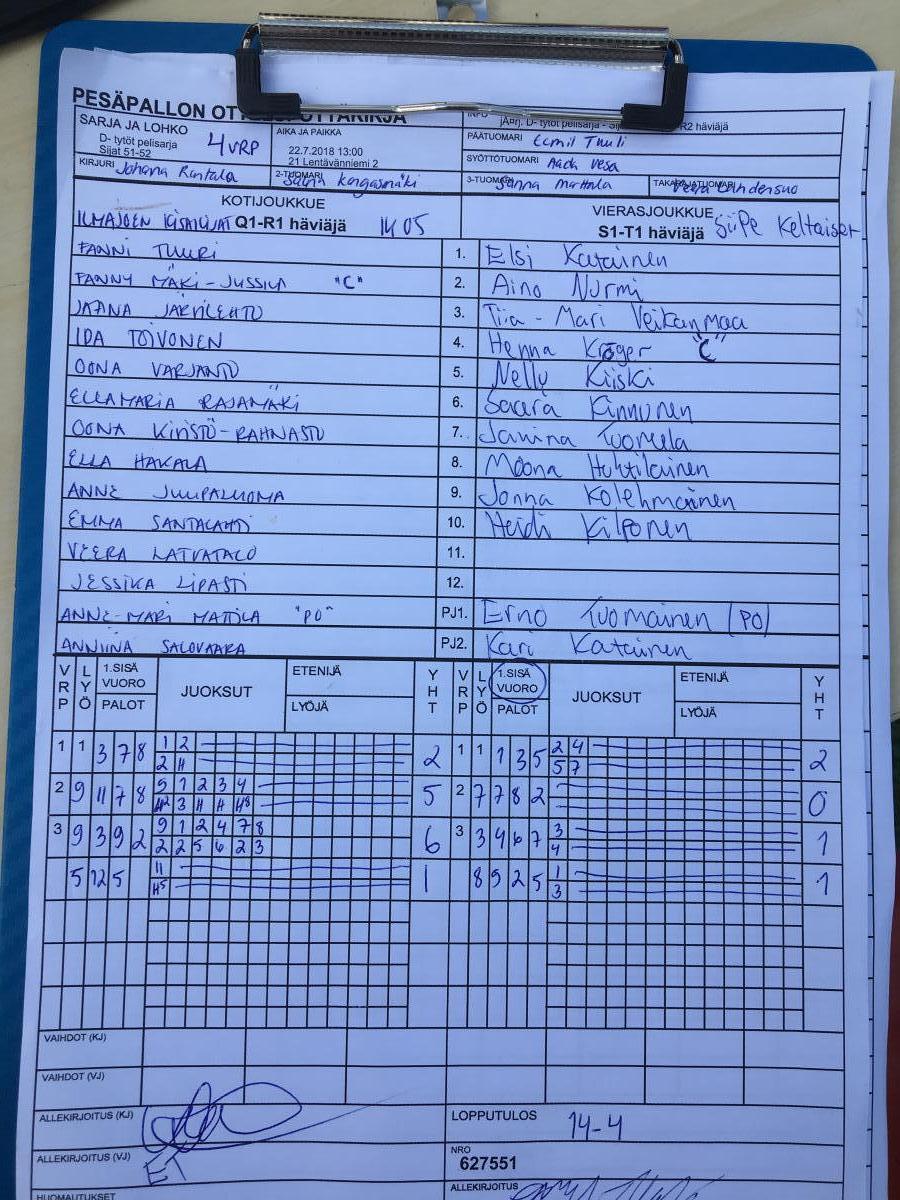 PESÄPALLON OTTELUPÖYTÄKIRJA
SARJA JA LOHKO
D- tytöt pelisarja
Sijat 51-52
4 VRP
AIKA JA PAIKKA
22.7.2018 13:00
21 Lentävänniemi 2
R2 häviäjä
PÄÄTUOMARI
Tuuli
SYÖTTÖTUOMARI Aada Vesa
KIRJURI Johana Rantala
2-TUOMARI Kangasmäki
3-TUOMARI Sanna Marttala
TAKARAJATUOMARI
KOTIJOUKKUE
ILMAJOEN KISAILIJAT Q1-R1 häviäjä 14 05
VIERASJOUKKUE
S1-T1 häviäjä SiiPe Keltaiset
FANNI TUURI 1. Elsi Katainen
FANNY MÄKI-JUSSILA "C" 2. Aino Nurmi
JAANA JÄRVILEHTO 3. Tiia-Mari Veikanmaa
IDA TOIVONEN 4. Henna Kröger "C"
OONA VARJANTO 5. Nelly Kiiski
ELLAMARIA RAJAMÄKI 6. Saara Kinnunen
OONA KIRISTÖ-RAHNASTO 7. Janina Tuomela
ELLA HAKALA 8. Moona Huhtilainen
ANNE JUUPALUOMA 9. Jonna Kolehmainen
EMMA SANTALAHTI 10. Heidi Kilponen
VEERA LATVATALO 11.
JESSIKA LIPASTI 12.
ANNE-MARI MATTILA "PO" PJ1. Erno Tuomainen (PO)
ANNIINA SALOVAARA PJ2. Kari Katainen
VRP LYÖ 1.SISÄ VUORO PALOT JUOKSUT ETENIJÄ LYÖJÄ YHT VRP LYÖ 1.SISÄ VUORO PALOT JUOKSUT ETENIJÄ LYÖJÄ YHT
1 1 3 7 8 1 2 2 1 1 1 3 5 2 4 2
2 H 5 7
2 9 11 7 8 9 1 2 3 4 5 2 7 7 8 2 0
3 H H
3 9 3 9 2 9 1 2 4 7 8 6 3 3 4 6 7 3 1
2 2 5 6 2 3 4
5 12 5 11 1 8 9 2 5 1 1
H5 3
VAIHDOT (KJ)
VAIHDOT (VJ)
ALLEKIRJOITUS (KJ)
LOPPUTULOS 14-4
ALLEKIRJOITUS (VJ)
NRO
627551
HUOMAUTUKSET
ALLEKIRJOITUS